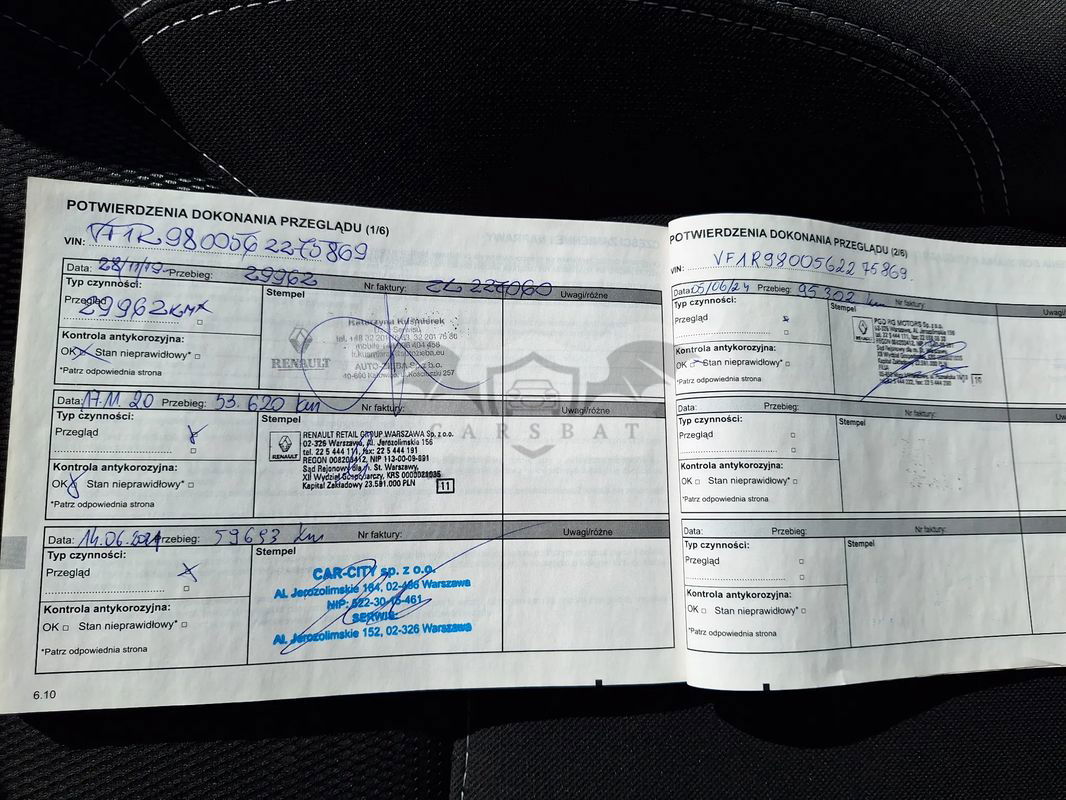 POTWIERDZENIA DOKONANIA PRZEGLĄDU (1/6)
VIN: VF1R9800562275869
Data: 28/11/19 Przebieg: 29962 Nr faktury:
Typ czynności: Stempel Uwagi/różne
Przegląd 29962 km x
Kontrola antykorozyjna:
OK x Stan nieprawidłowy* □
*Patrz odpowiednia strona
Katarzyna
Serwisu
RENAULT
AUTO-ZIĘBA Sp. z o.o.
40-600 Katowice, ul. Kościuszki 257
Data: 17.11.20 Przebieg: 53.620 km Nr faktury: Uwagi/różne
Typ czynności: Stempel
Przegląd x
□
Kontrola antykorozyjna:
OK x Stan nieprawidłowy* □
*Patrz odpowiednia strona
RENAULT
RENAULT RETAIL GROUP WARSZAWA Sp. z o.o.
02-326 Warszawa, Al. Jerozolimskie 156
tel. 22 5 444 111, fax: 22 5 444 191
REGON 008203412, NIP 113-00-09-891
Sąd Rejonowy dla m. St. Warszawy,
XII Wydział Gospodarczy, KRS 0000021035
Kapitał Zakładowy 23.591.000 PLN
11
Data: 14.06.2021 Przebieg: 59693 km Nr faktury: Uwagi/różne
Typ czynności: Stempel
Przegląd x
□
Kontrola antykorozyjna:
OK □ Stan nieprawidłowy* □
*Patrz odpowiednia strona
CAR-CITY sp. z o.o.
Al. Jerozolimskie 02-486 Warszawa
SERWIS:
Al. Jerozolimskie 152, 02-326 Warszawa
6.10
POTWIERDZENIA DOKONANIA PRZEGLĄDU (2/6)
VIN: VF1R9800562275869
Data: 05/06/24 Przebieg: 95302 km Nr faktury:
Typ czynności: Stempel
Przegląd x
□
Kontrola antykorozyjna:
OK Stan nieprawidłowy* □
*Patrz odpowiednia strona
RENAULT
PGD RG MOTORS Sp. z o.o.
02-326 Warszawa, Al. Jerozolimskie 156
Data: Przebieg: Nr faktury:
Typ czynności: Stempel
Przegląd □
□
Kontrola antykorozyjna:
OK □ Stan nieprawidłowy* □
*Patrz odpowiednia strona
Data: Przebieg: Nr faktury:
Typ czynności: Stempel
Przegląd □
□
Kontrola antykorozyjna:
OK □ Stan nieprawidłowy* □
*Patrz odpowiednia strona
CARSBAT